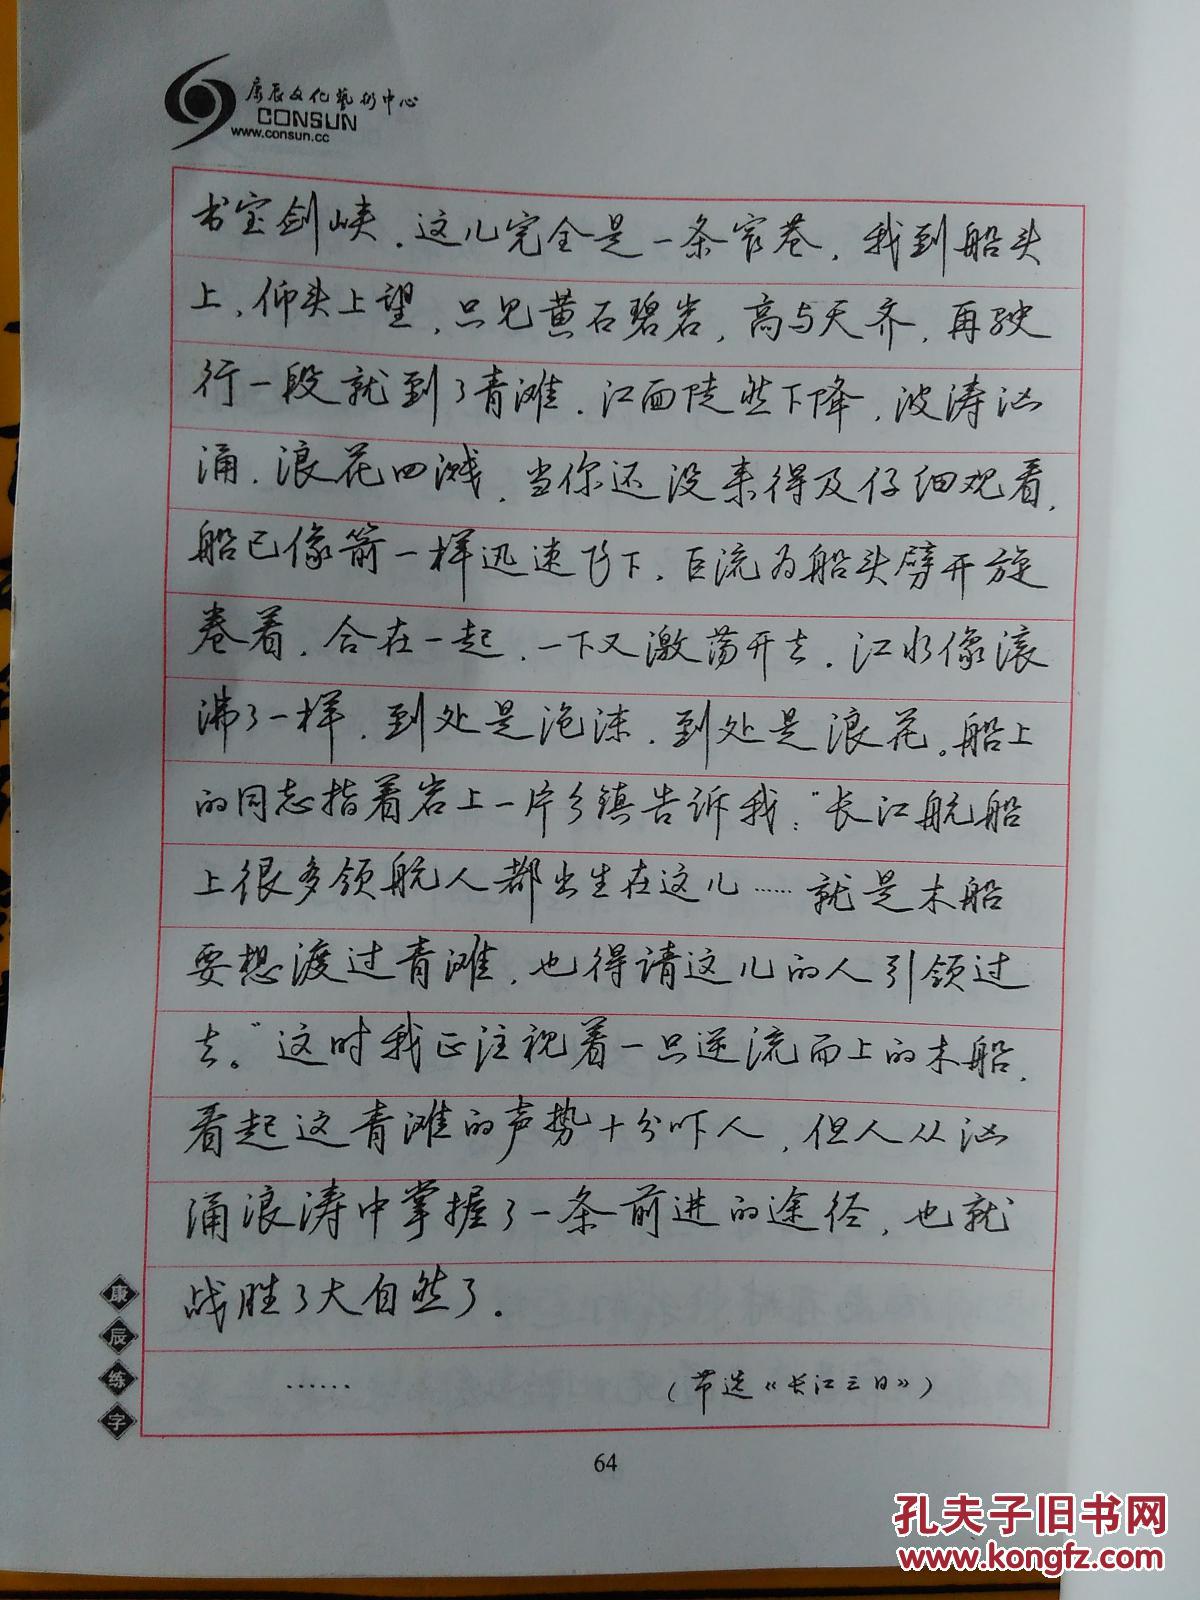 康辰文化藝術中心
CONSUN
www.consun.cc
书宝剑峡。这儿完全是一条窄巷，我到船头
上，仰头上望，只见黄石碧岩，高与天齐，再驶
行一段就到了青滩。江面陡然下降，波涛汹
涌，浪花四溅，当你还没来得及仔细观看，
船已像箭一样迅速飞下，巨流为船头劈开旋
卷着，合在一起，一下又激荡开去。江水像滚
沸了一样，到处是泡沫，到处是浪花。船上
的同志指着岩上一片乡镇告诉我：“长江航船
上很多领航人都出生在这儿……就是木船
要想渡过青滩，也得请这儿的人引领过
去。”这时我正注视着一只逆流而上的木船，
看起这青滩的声势十分吓人，但人从汹
涌浪涛中掌握了一条前进的途径，也就
战胜了大自然了。
……（节选《长江三日》）
康辰练字
64
孔夫子旧书网
www.kongfz.com